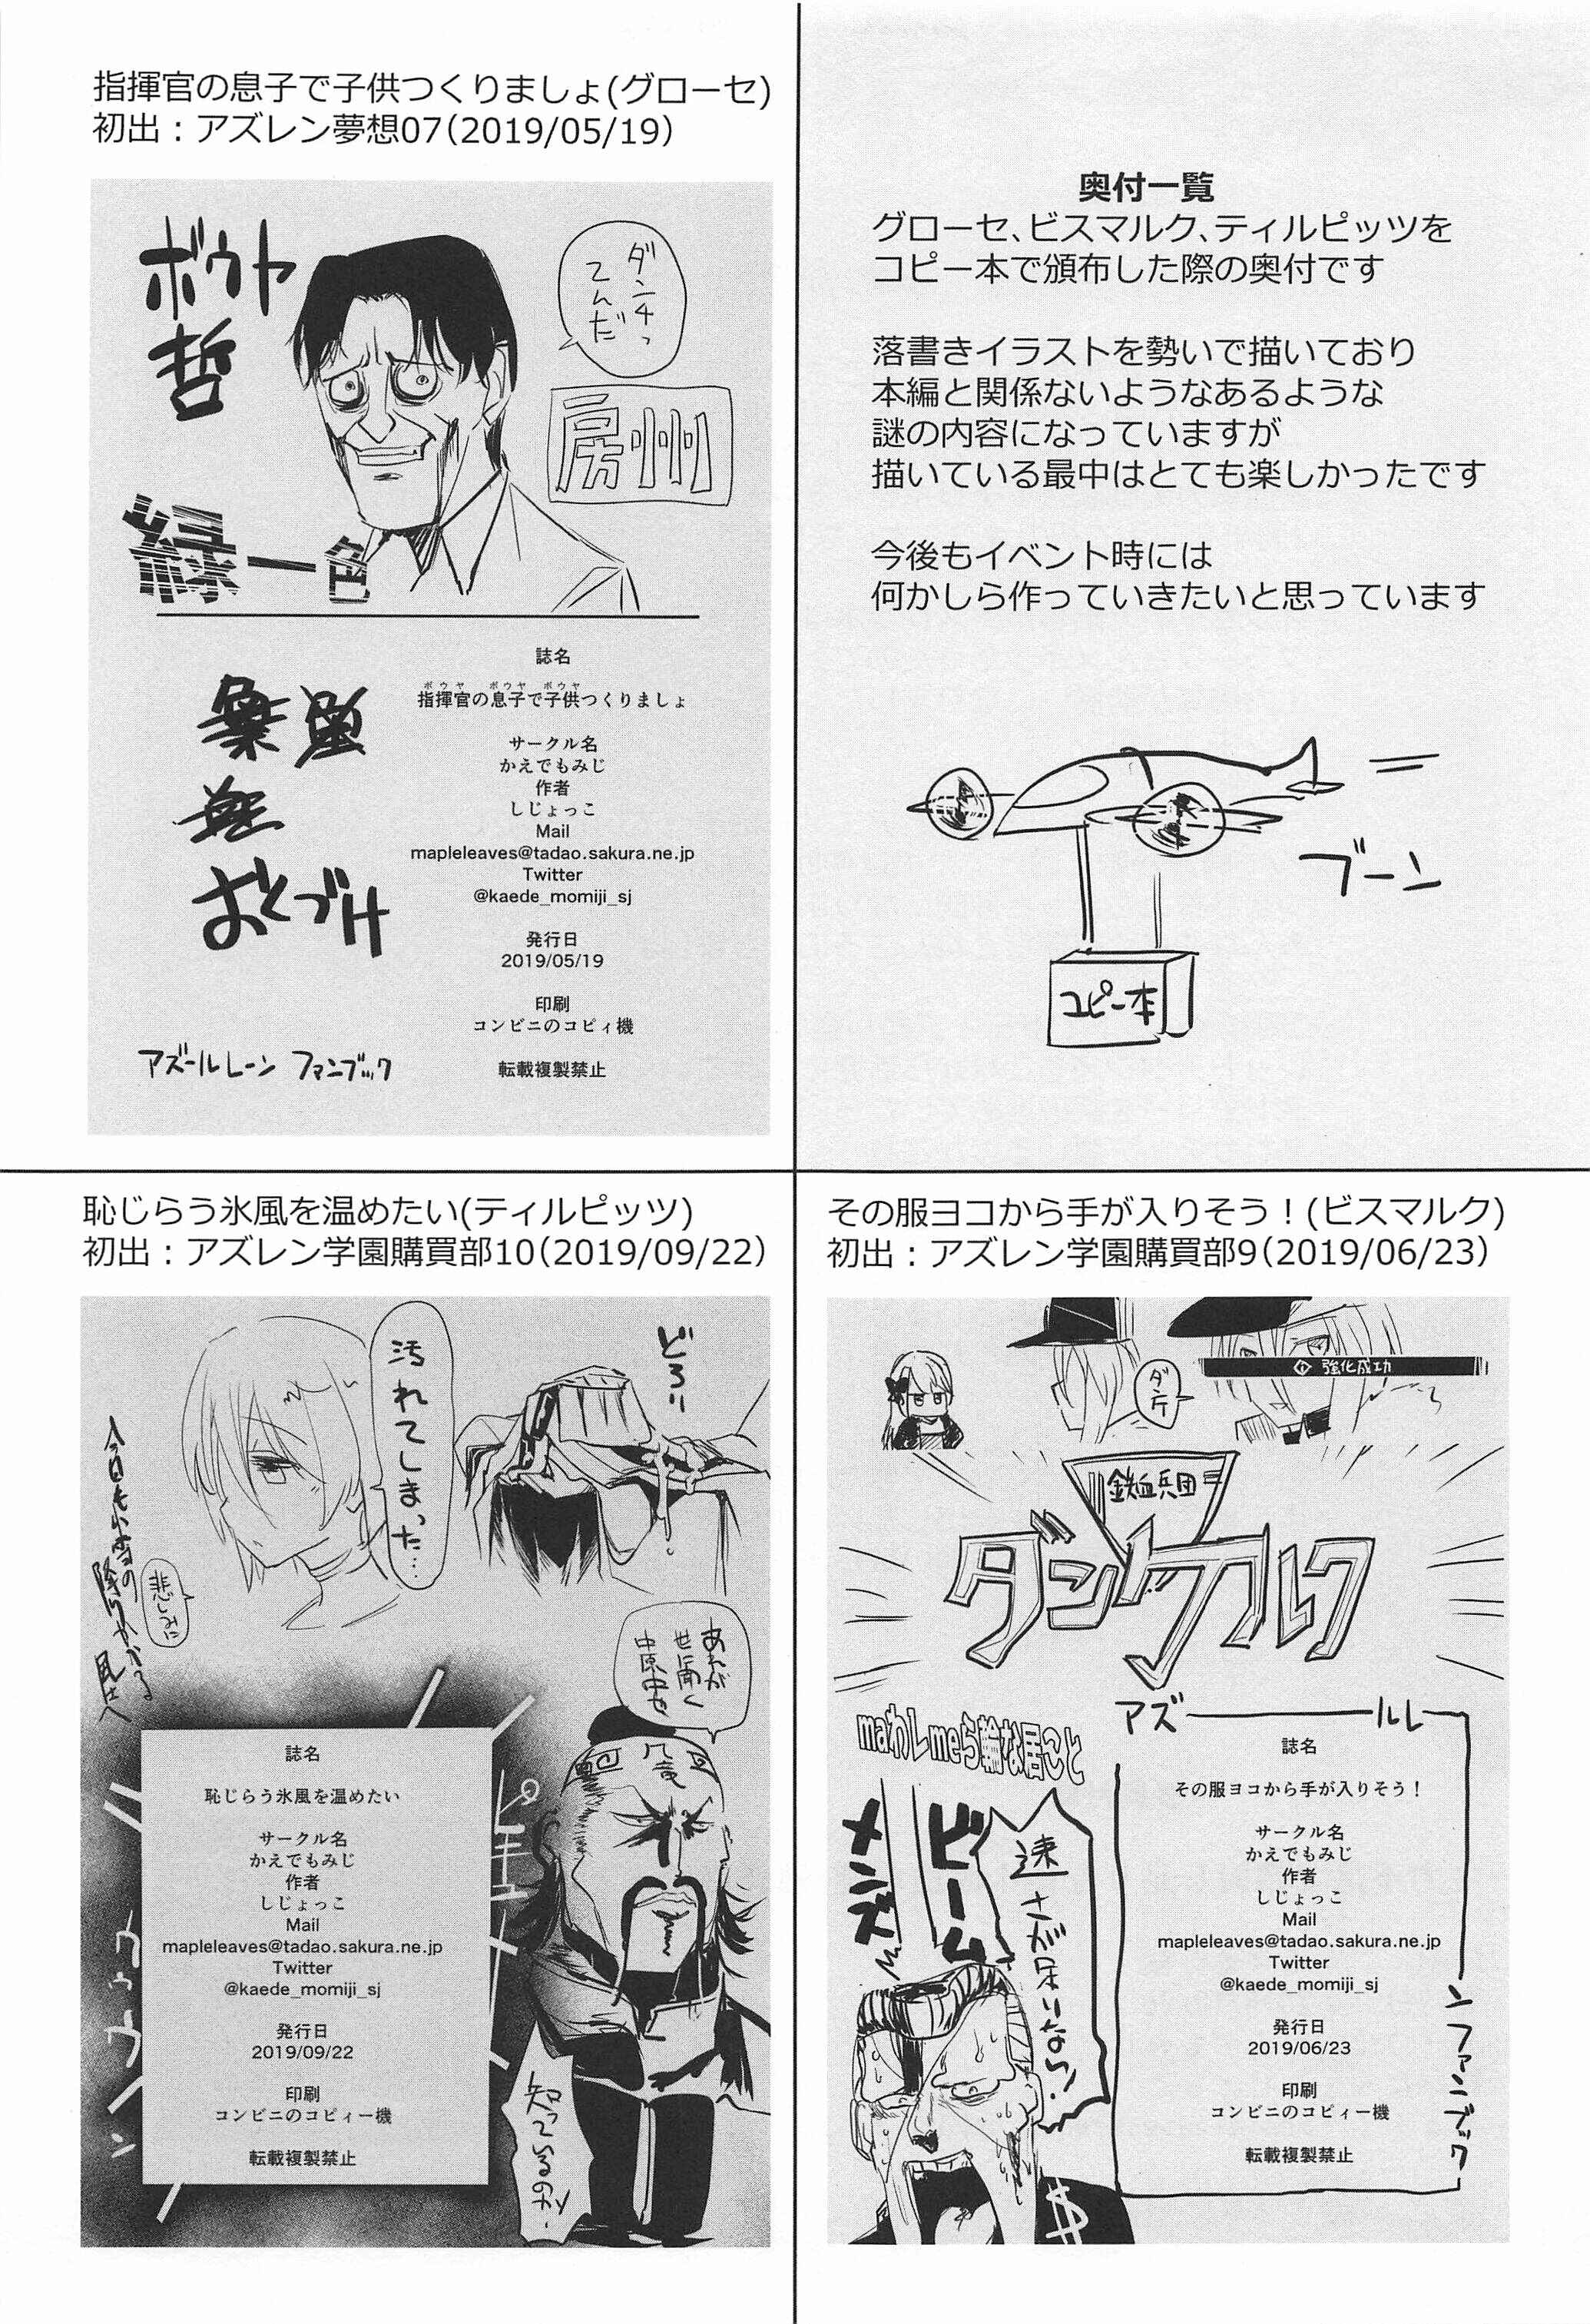 奥付一覧
グローセ、ビスマルク、ティルピッツを
コピー本で頒布した際の奥付です
落書きイラストを勢いで描いており
本編と関係ないようなあるような
謎の内容になっていますが
描いている最中はとても楽しかったです
今後もイベント時には
何かしら作っていきたいと思っています
ブーン
コピー本
指揮官の息子で子供つくりましょ(グローセ)
初出：アズレン夢想07(2019/05/19)
ダンチっ
てんだ
房州
ボウヤ
哲
緑一色
おくづけ
アズールレーン ファンブック
誌名
ボウヤ ボウヤ ボウヤ
指揮官の息子で子供つくりましょ
サークル名
かえでもみじ
作者
しじょっこ
Mail
mapleleaves@tadao.sakura.ne.jp
Twitter
@kaede_momiji_sj
発行日
2019/05/19
印刷
コンビニのコピィ機
転載複製禁止
その服ヨコから手が入りそう！(ビスマルク)
初出：アズレン学園購買部9(2019/06/23)
強化成功
鉄血兵団
ダンケルク
アズールレーンファンブック
maわしmeら輪な居こと
ビーム
メンズ
速さが足りない!
$
誌名
その服ヨコから手が入りそう！
サークル名
かえでもみじ
作者
しじょっこ
Mail
mapleleaves@tadao.sakura.ne.jp
Twitter
@kaede_momiji_sj
発行日
2019/06/23
印刷
コンビニのコピィー機
転載複製禁止
恥じらう氷風を温めたい(ティルピッツ)
初出：アズレン学園購買部10(2019/09/22)
どろぉ
汚れてしまった…
悲しみに
今日も小雪の降りかかる
あれが
世に聞く
中原中也
知っているのか
誌名
恥じらう氷風を温めたい
サークル名
かえでもみじ
作者
しじょっこ
Mail
mapleleaves@tadao.sakura.ne.jp
Twitter
@kaede_momiji_sj
発行日
2019/09/22
印刷
コンビニのコピィー機
転載複製禁止